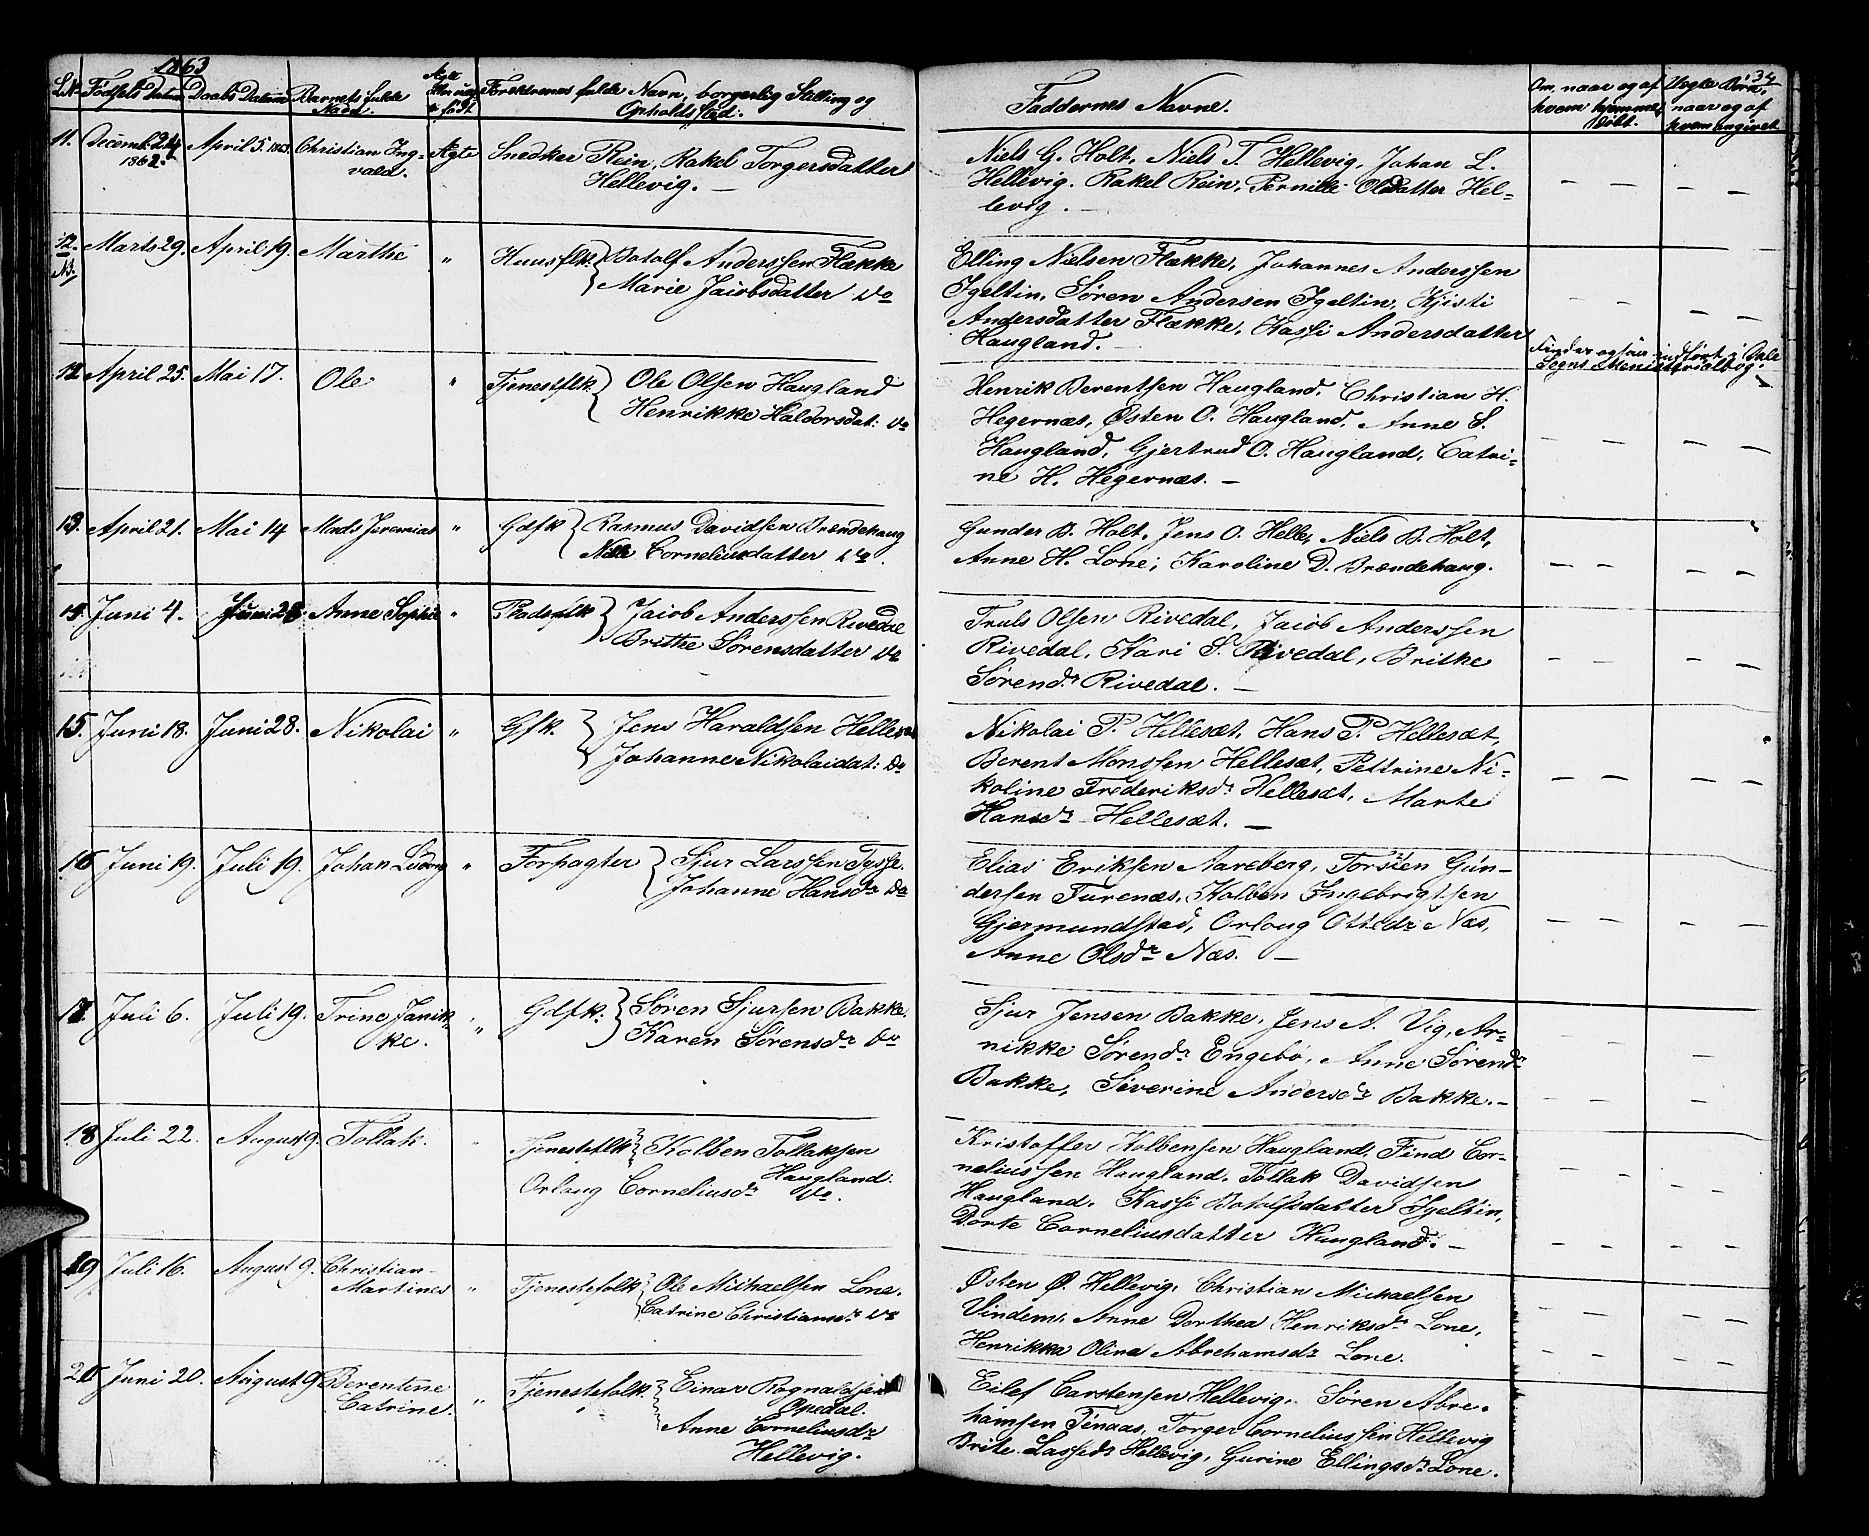 1863
34
L.No Fødsels Datum Daabs Datum Barnets fulde Navn. Ægte født Forældrenes fulde Navn, borgerlig Stilling og Opholdssted. Faddernes Navne. Om, naar og af hvem hjemme døbt. Uægte Børn, naar og af hvem angivet
11. Decemb. 24 1862. April 5. 1863. Christian Ing- Ægte Snedker Rein, Rakel Torgersdatter
vald. Hellevig. —
Niels G. Holt, Niels T. Hellevig, Johan L.
Hellevig. Rakel Rein, Pernille Olsdatter Hel-
levig. —
12. Marts 29. April 19. Marthe " Huusflk. Botolf Anderssen Flække
Marie Jacobsdatter do
Elling Nielsen Flække, Johannes Anderssen
Igeltin, Søren Andersen Igeltin, Kjisti
Andersdatter Flække, Kassi Andersdatter
Haugland.
Findes ogsaa indført i Dale
Sogns Menisterialbog.
12 April 25. Mai 17. Ole " Tjenestflk Ole Olsen Haugland
Henrikke Haldorsdat: do
Henrik Berentsen Haugland, Christian H.
Hegernæs, Østen O. Haugland, Anne S.
Haugland, Gjertrud O. Haugland, Catri-
ne H. Hegernæs. —
13. April 21. Mai 14 Mads Jeremias " Gdfk Rasmus Davidsen Brændehaug
Nille Corneliusdatter do.
Gunder B. Holt, Jens O. Helle, Niels B. Holt,
Anne H. Lone, Karoline D. Brændehaug.
14. Juni 4. Juni 28 Anne Sophie " Pladsfolk Jacob Anderssen Rivedal
Brithe Sørensdatter do
Truls Olsen Rivedal, Jacob Anderssen
Rivedal, Kari S. Rivedal, Brithe
Sørendr Rivedal. —
15. Juni 18. Juni 28. Nikolai " Gfk. Jens Haraldsen Hellesæt
Johanne Nikolaidat: do
Nikolai P. Hellesæt, Hans P. Hellesæt,
Berent Monssen Hellesæt, Pettrine Ni-
koline Frederiksdr Hellesæt, Marte
Hansdr Hellesæt. —
16 Juni 19. Juli 19. Johan Ludvig " Forpagter Sjur Larssen Tysse.
Johanne Hansdr do
Elias Eriksen Aareberg, Torsten Gun-
dersen Furenæs, Kolben Ingebrigtsen
Gjermundstad, Orloug Ottedr Næs,
Anne Olsdr Næs. —
17. Juli 6. Juli 19. Trine Janik- " Gdfk. Søren Sjursen Bakke.
ke. Karen Sørensdr do
Sjur Jensen Bakke, Jens A. Vig, Ar-
nikke Sørendr Engebø, Anne Sørendr
Bakke, Severine Andersdr Bakke. —
18 Juli 22. August 9. Tollak. " Tjenestefolk Kolben Tollaksen
Haugland.
Orloug Corneliusdr do.
Kristoffer Kolbensen Haugland, Find Cor-
neliussen Haugland, Tollak Davidsen
Haugland, Kassi Botolfsdatter Igeltin,
Dorte Corneliusdatter Haugland. —
19 Juli 16. August 9. Christian
Martines " Tjenestefolk Ole Michaelsen Lone.
Catrine Christiansdr do
Østen Ø. Hellevig, Christian Michaelsen
Vindem, Anne Dorthea Henriksdr Lone,
Henrikka Olina Abrahamsdr Lone.
20 Juni 20. August 9 Berentine
Catrine. " Tjenestefolk Einar Rognaldsen
Opedal.
Anne Corneliusdr
Hellevig.
Eilef Carstensen Hellevig, Søren Abra-
hamsen Tenaas, Torger Corneliussen Hellevig
Brite Lassedr Hellevig, Gurine Ellingsdr Lone.